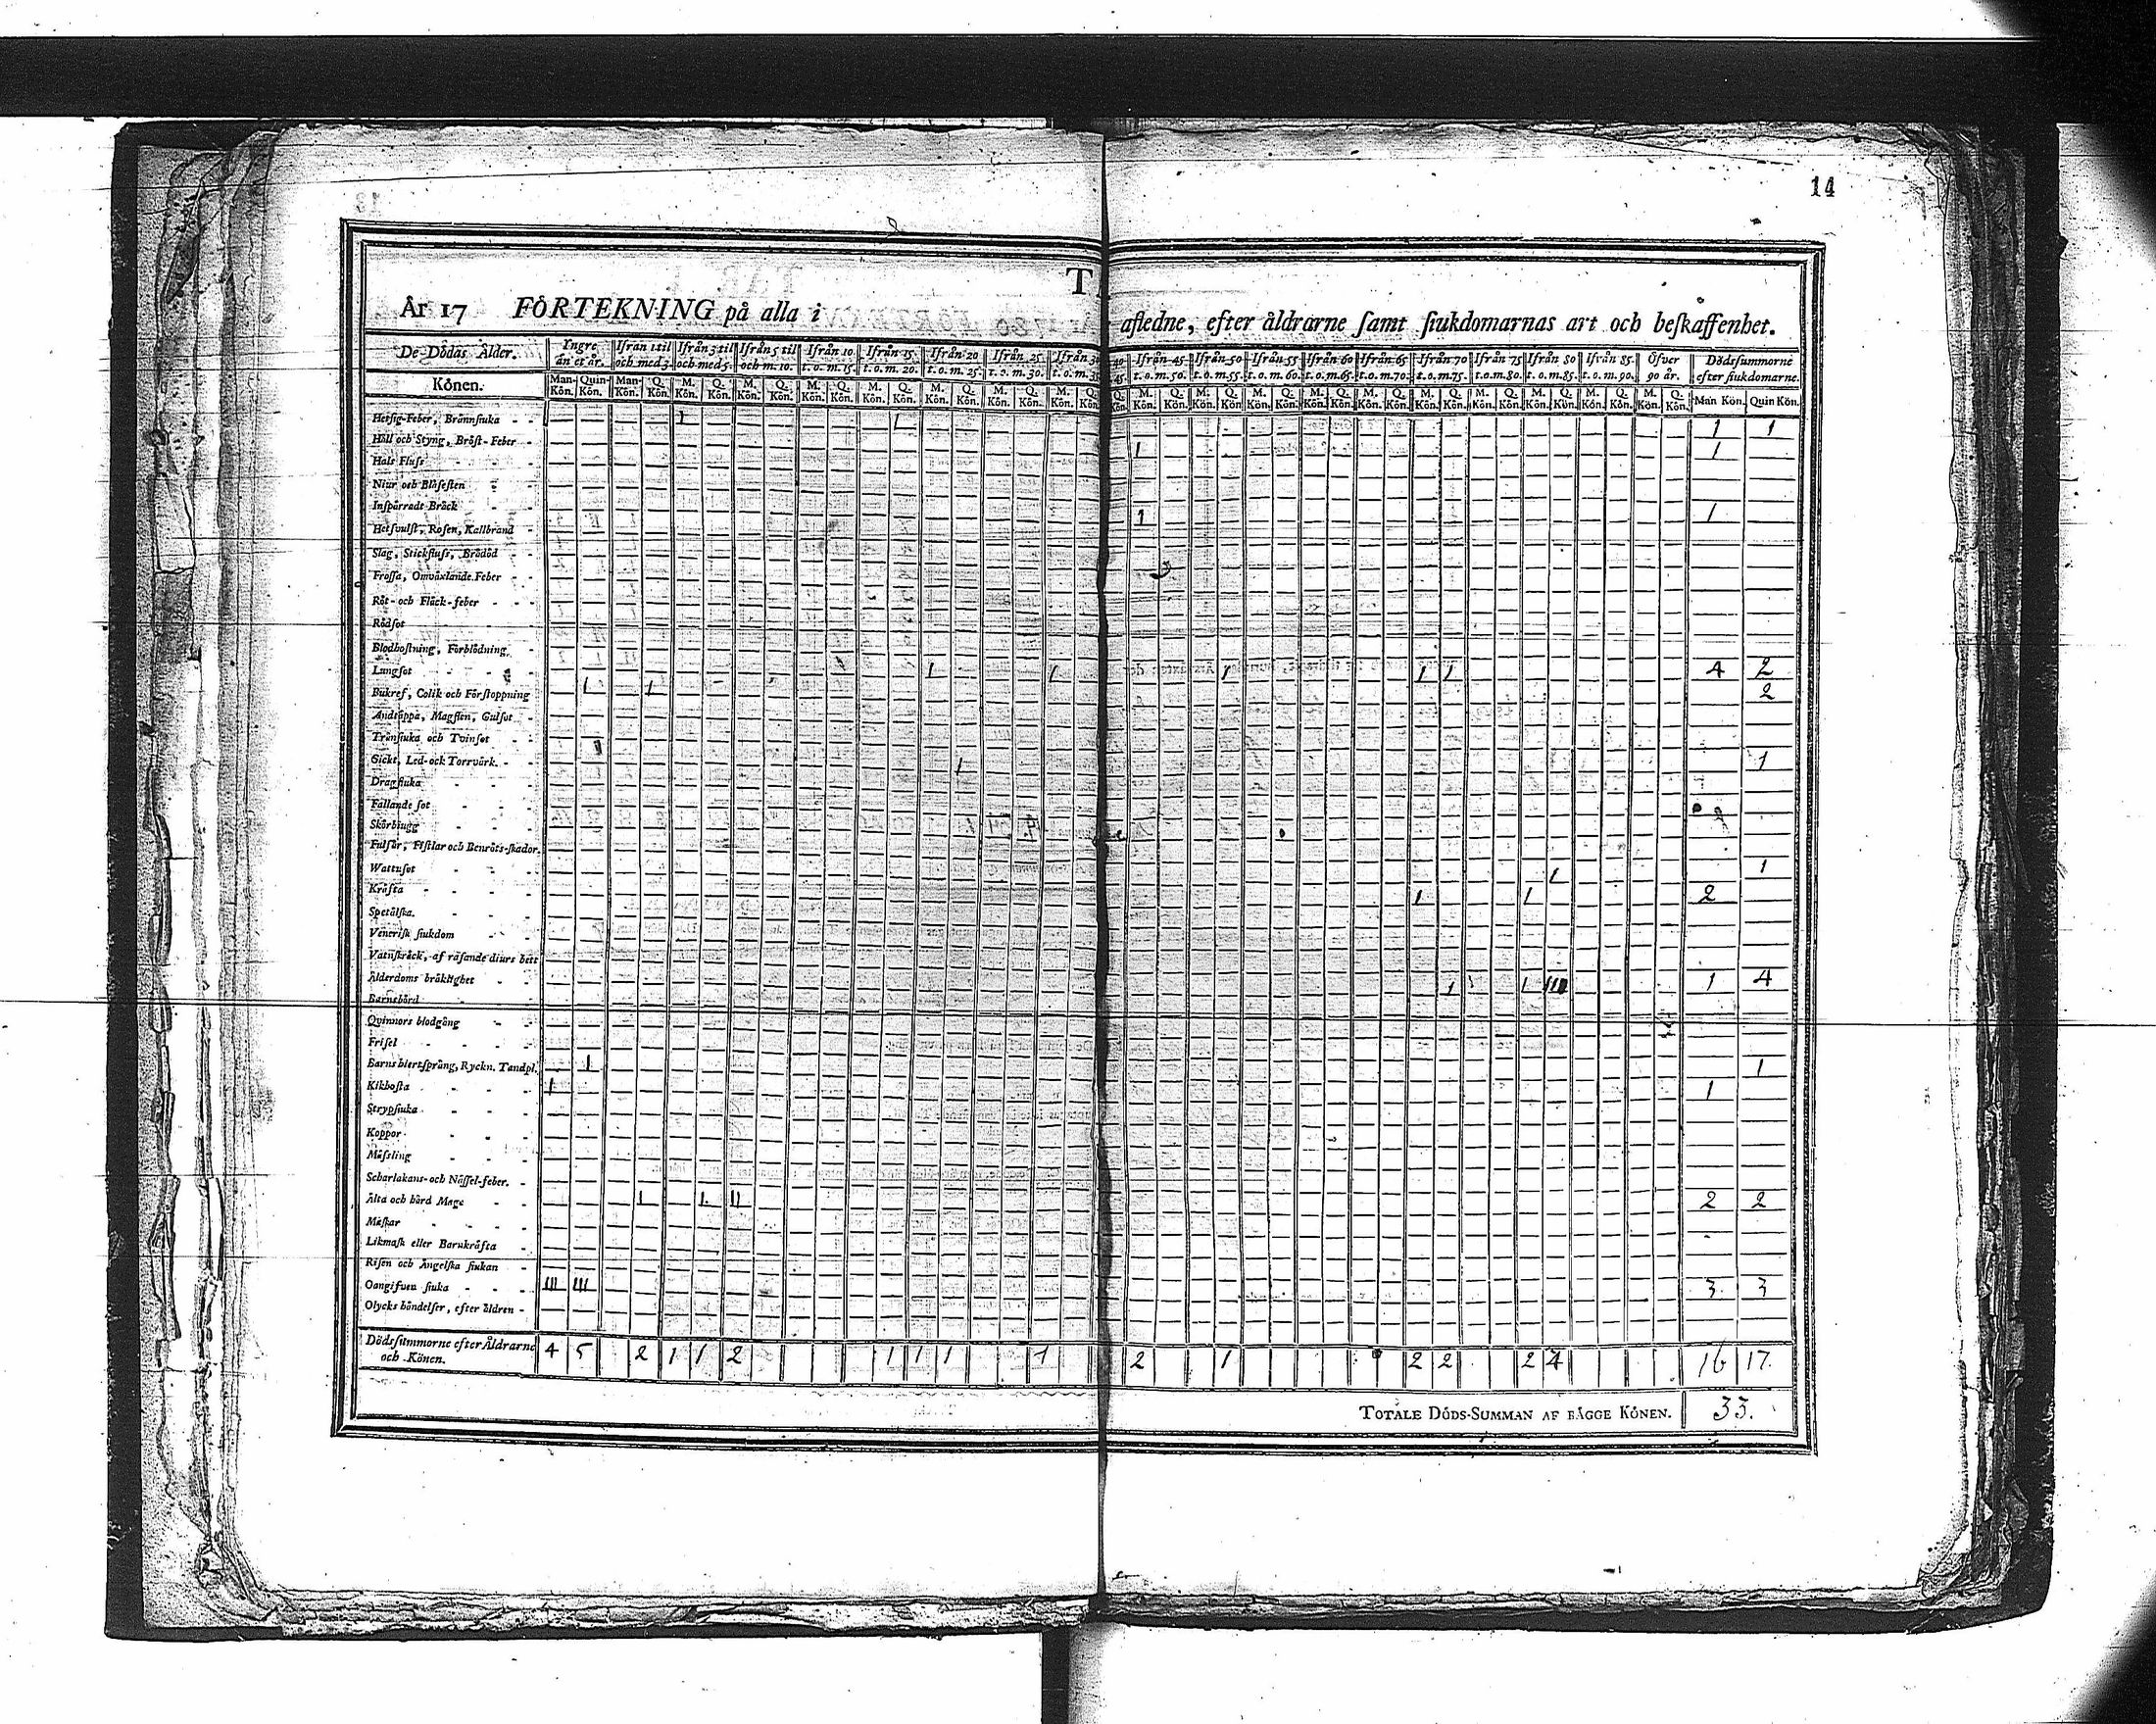 14
T
År 17 FÖRTEKNING på alla i afledne, efter åldrarne samt siukdomarnas art och beskaffenhet.
De Dödas Ålder. Yngre än et år. Ifrån 1 til och med 3. Ifrån 3 til och med 5. Ifrån 5 til och m. 10. Ifrån 10 t. o. m. 15. Ifrån 15 t. o. m. 20. Ifrån 20 t. o. m. 25. Ifrån 25 t. o. m. 30. Ifrån 30 t. o. m. 35 Ifrån 45 t. o. m. 50. Ifrån 50 t. o. m. 55. Ifrån 55 t. o. m. 60. Ifrån 60 t. o. m. 65. Ifrån 65 t. o. m. 70. Ifrån 70 t. o. m. 75. Ifrån 75 t. o. m. 80. Ifrån 80 t. o. m. 85. Ifrån 85 t. o. m. 90. Öfver 90 år. Dödssummorne efter siukdomarne.
Könen. Man-Kön. Quin-Kön. Man-Kön. Q. Kön. M. Kön. Q. Kön. M. Kön. Q. Kön. M. Kön. Q. Kön. M. Kön. Q. Kön. M. Kön. Q. Kön. M. Kön. Q. Kön. M. Kön. Q. Kön. Q. Kön. M. Kön. Q. Kön. M. Kön. Q. Kön. M. Kön. Q. Kön. M. Kön. Q. Kön. M. Kön. Q. Kön. M. Kön. Q. Kön. M. Kön. Q. Kön. M. Kön. Q. Kön. M. Kön. Q. Kön. M. Kön. Q. Kön. Man Kön. Quin Kön.
Hetsig-Feber, Brännsiuka 1 1 1 1
Håll och Styng, Bröst-Feber 1 1
Hals Fluss
Niur och Blåsesten
Inspärradt Bråck 1 1
Hetsvulst, Rosen, Kallbrand
Slag, Stickfluss, Brådöd
Frossa, Omväxlande Feber
Röt- och Fläck-feber
Rödsot
Blodhostning, Förblödning
Lungsot 1 1 1 1 1 4 2
Bukref, Colik och Förstoppning 1 1 2
Andtäppa, Magsten, Gulsot
Trånsiuka och Tvinsot
Gickt, Led- ock Torrvärk 1 1
Dragsiuka
Fallande sot
Skörbiugg
Fulsår, Fistlar och Benröts-skador.
Wattusot 1 1
Kräfta 1 1 2
Spetälska.
Venerisk siukdom
Vatuskräck, af rasande diurs bett
Ålderdoms bräklighet 1 1 III 1 4
Barnsbörd
Qvinnors blodgång
Frisel
Barns hiertsprång, Ryckn. Tandpl. 1 1
Kikhosta 1 1
Strypsiuka
Koppor
Mässling
Scharlakans- och Nässel-feber.
Älta och hård Mage 1 1 II 2 2
Maskar
Likmask eller Barnkräfta
Risen och Ängelska siukan
Oangifven siuka III III 3 3
Olycks händelser, efter åldren
Dödssummorne efter Åldrarne och Könen. 4 5 2 1 1 2 1 1 1 1 2 1 2 2 2 4 16 17.
TOTALE DÖDS-SUMMAN AF BÄGGE KÖNEN. 33.